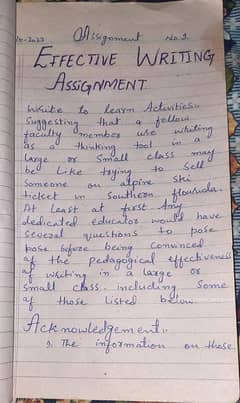 10-2022 Assignment No 1.
EFFECTIVE WRITING
ASSIGNMENT
Write to learn Activities:-
Suggesting that a fellow
faculty member use writing
as a thinking tool in a
large or small class may
be like trying to sell
someone an alpine ski
ticket in Southern
At least at first. Any
dedicated educator would have
several questions to pose
pose before being convinced
of the pedagogical effectiveness
of writing in a large or
small class. including some
of those listed below.
Acknowledgement:-
The information on those